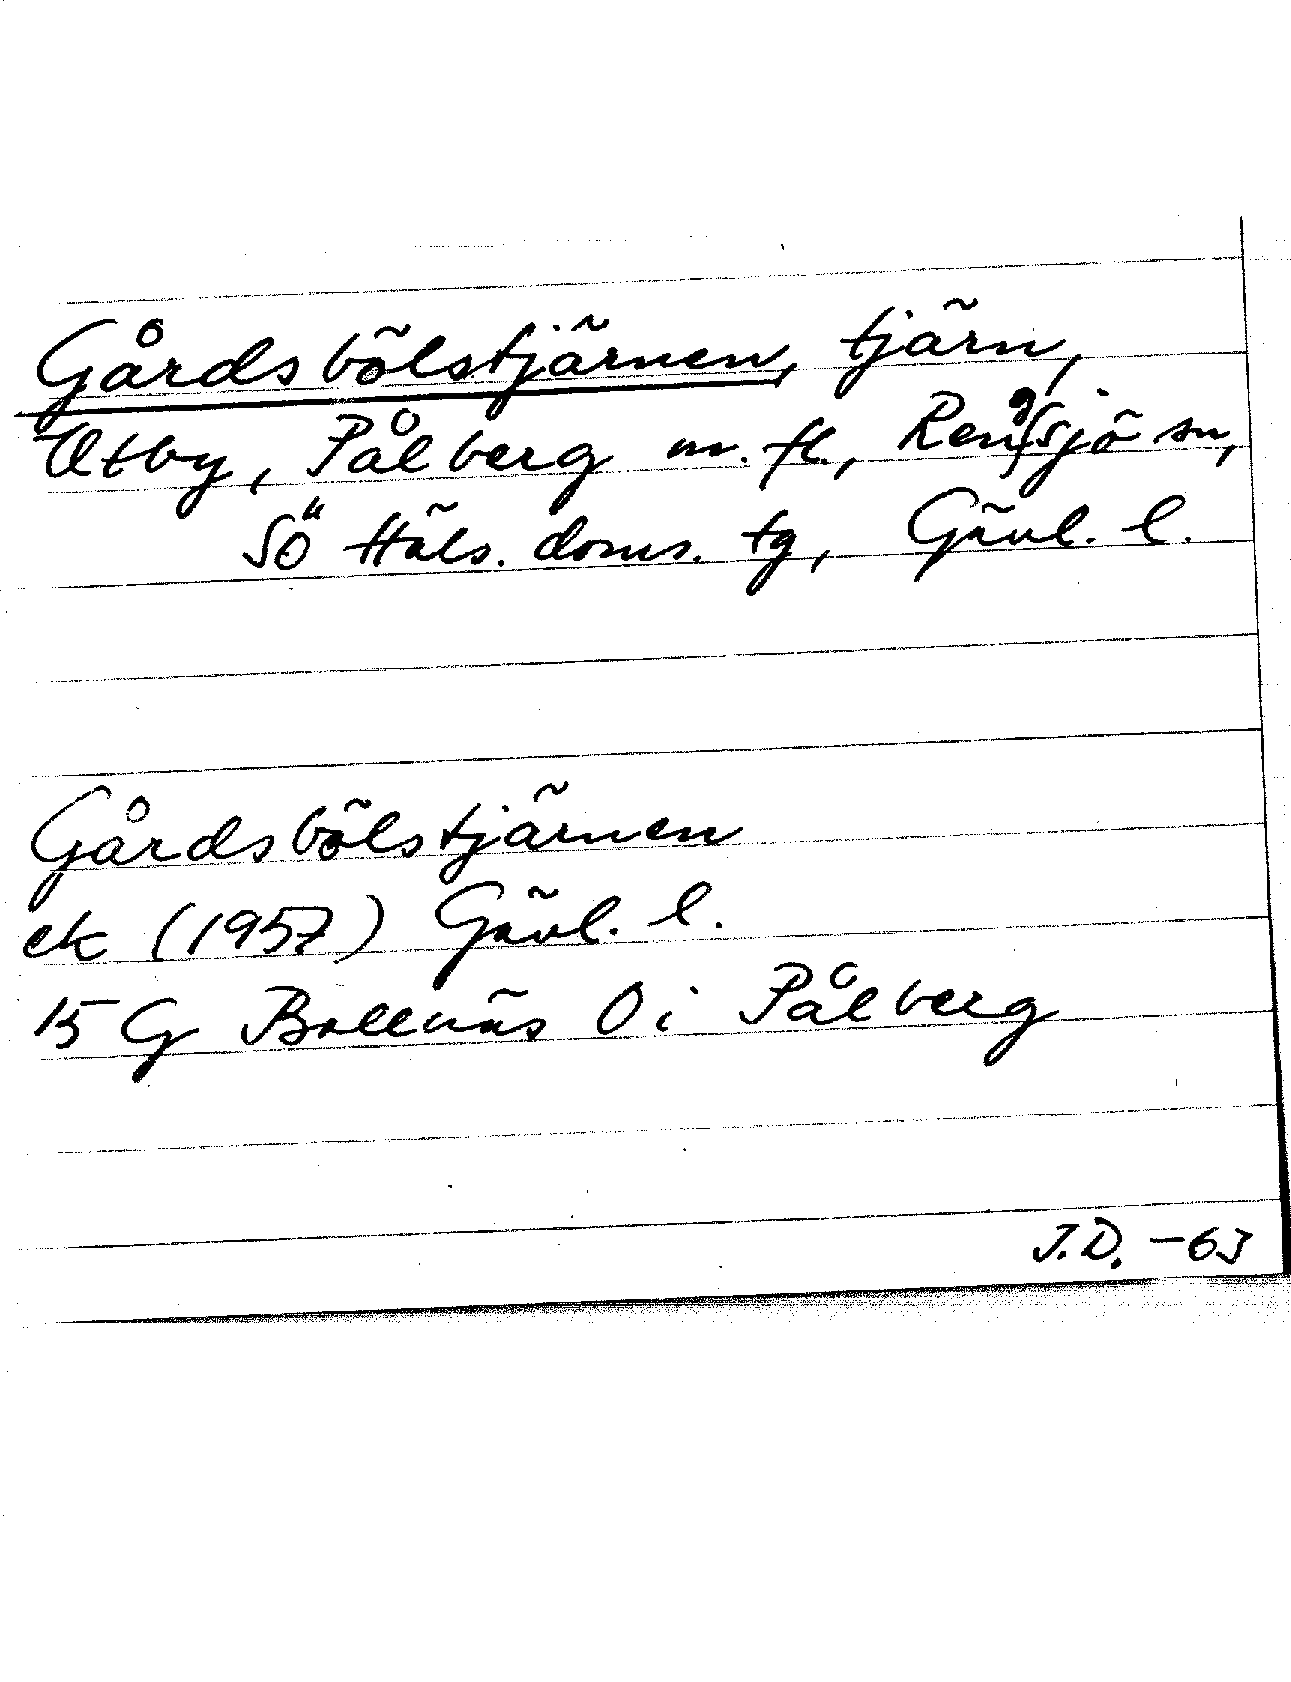 Gårdsbölstjärnen, tjärn,
Utby, Pålberg m. fl., Rengsjö sn,
Sö Häls. doms. tg, Gävl. l.
Gårdsbölstjärnen
ek (1957) Gävl. l.
15 G Bollnäs O i Pålberg
J.D. -63